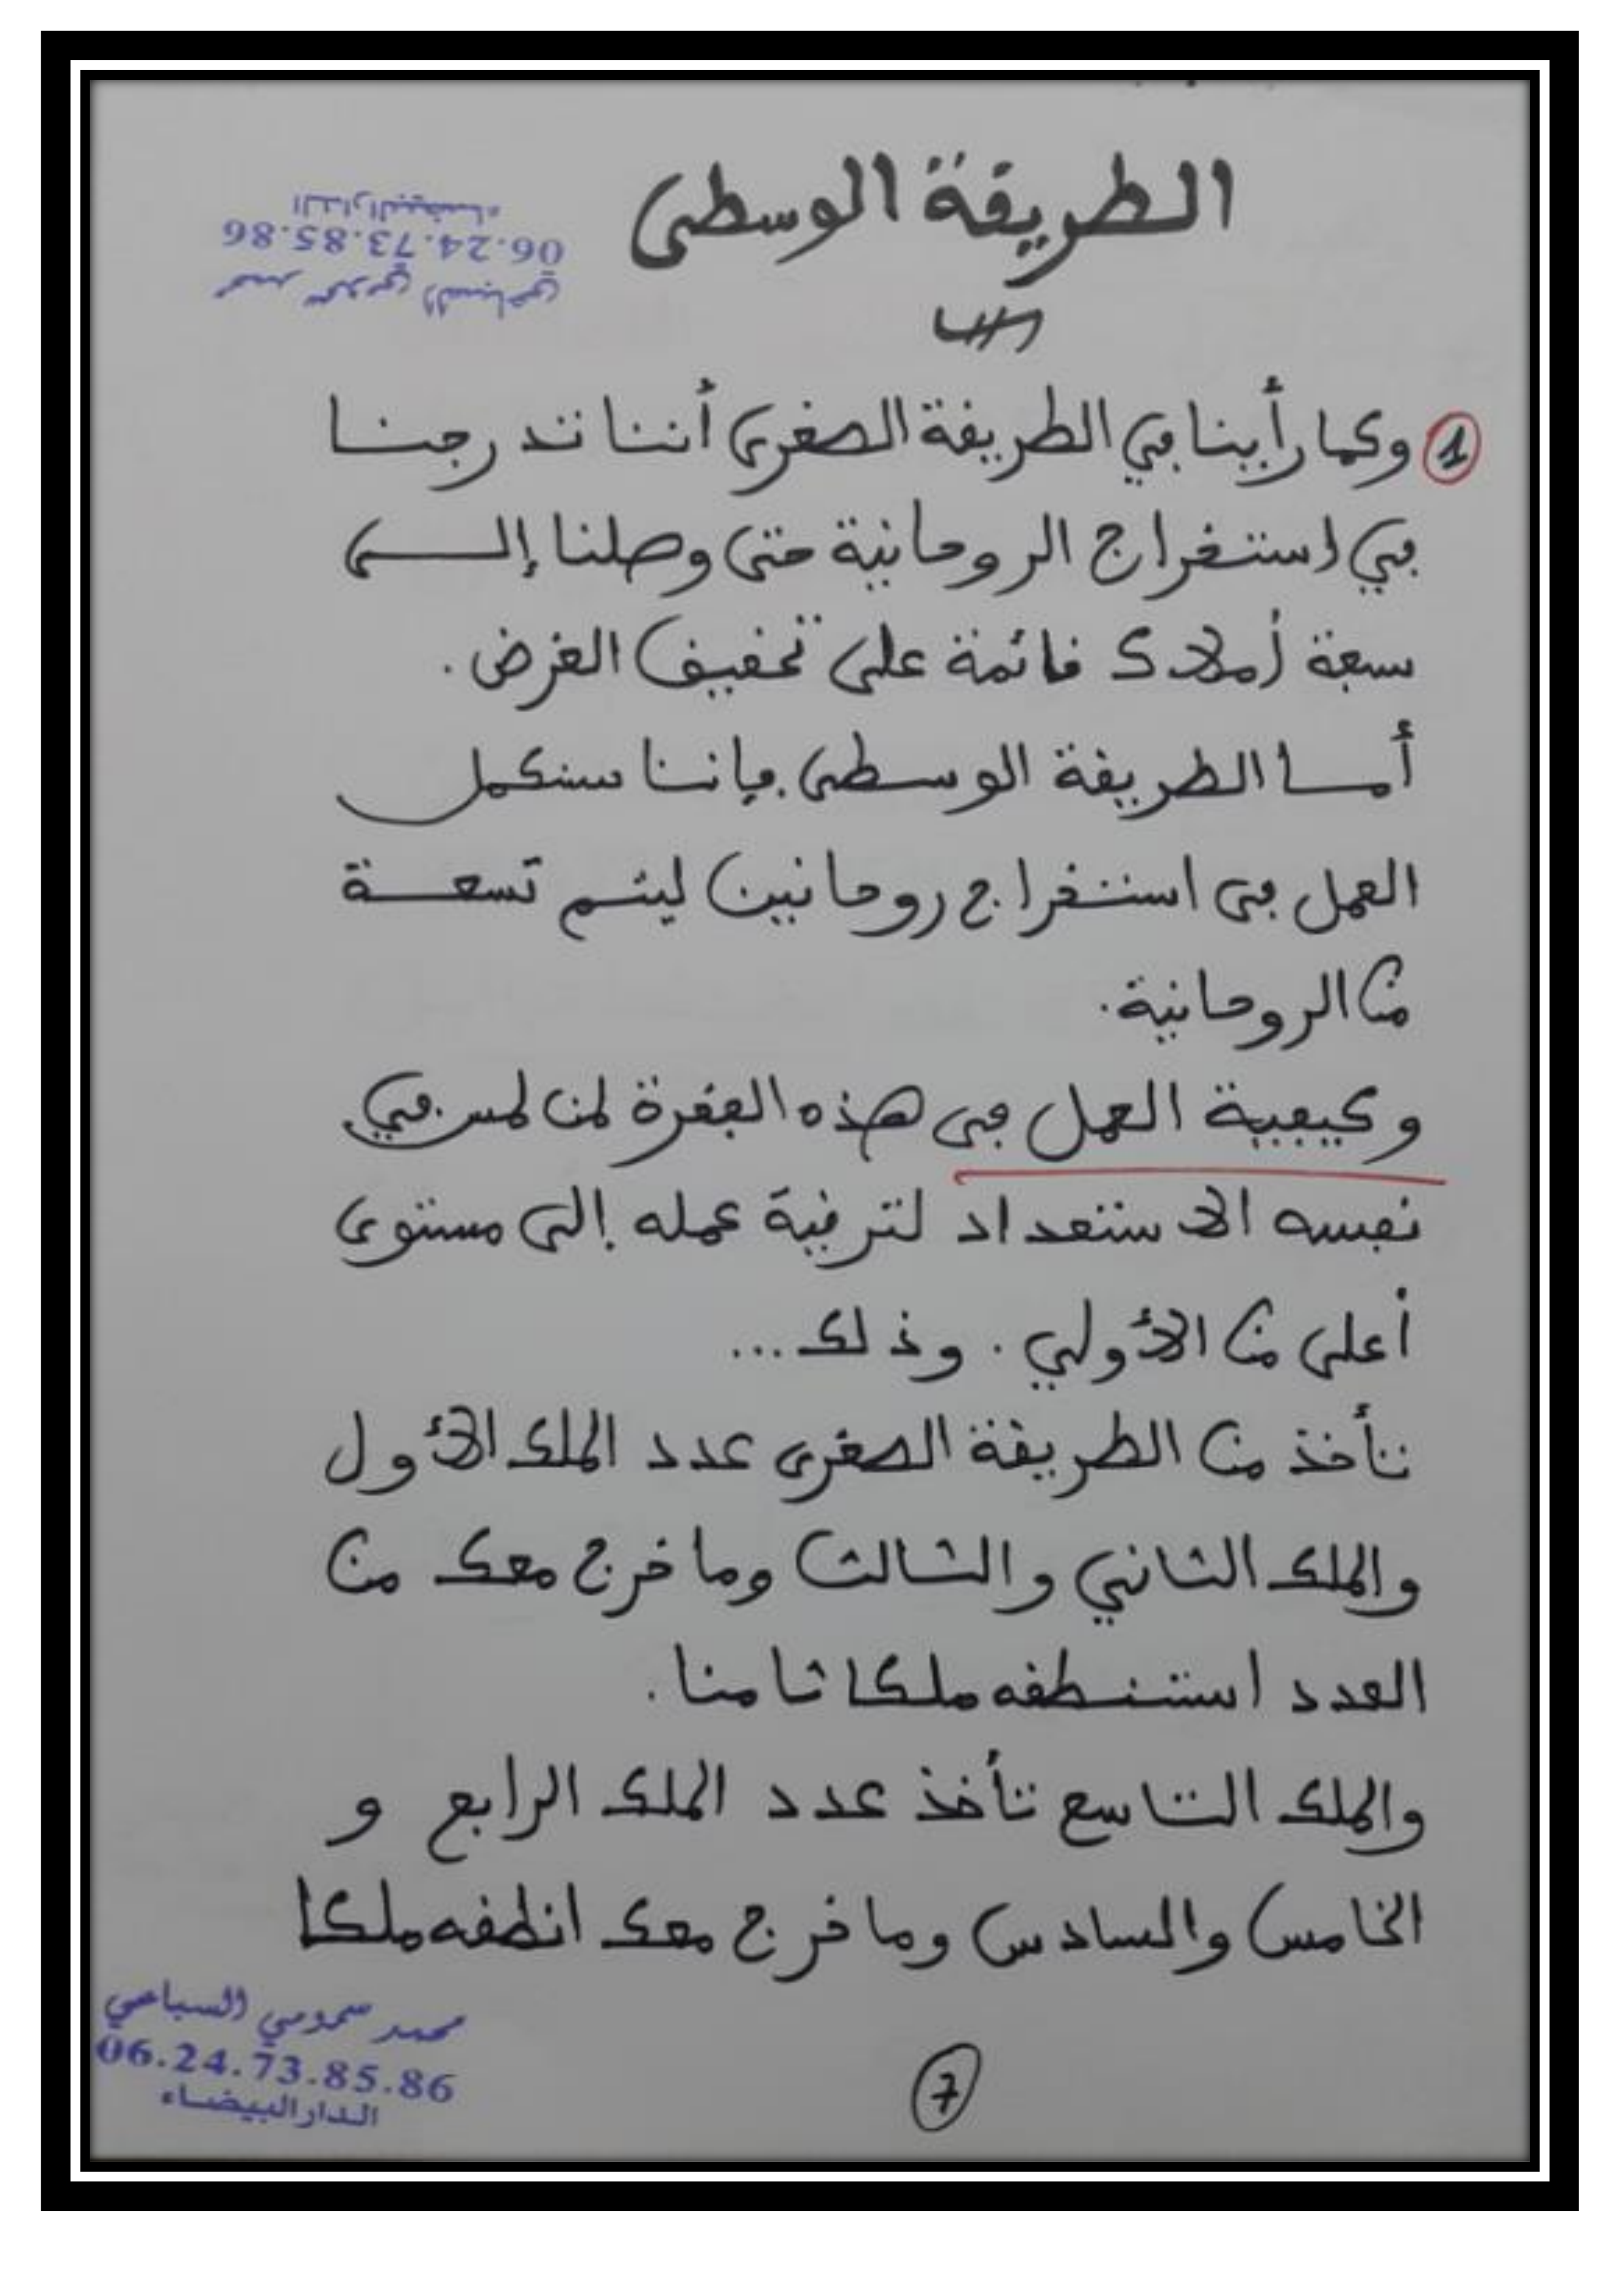 الطريقة الوسطى
الدار البيضاء
06.24.73.85.86
محمد سمومي السباعي
1 وكما رأينا في الطريقة الصغرى أننا تدرجنا
في استخراج الروحانية حتى وصلنا إلى
سبعة أملاك قائمة على تحقيق الغرض.
أما الطريقة الوسطى فإننا سنكمل
العمل في استخراج روحانين ليتم تسعة
من الروحانية.
وكيفية العمل في هذه الفقرة لمن لمس في
نفسه الاستعداد لترقية عمله إلى مستوى
أعلى من الأولي. وذلك...
تأخذ من الطريقة الصغرى عدد الملك الأول
والملك الثاني والثالث وما خرج معك من
العدد استنطقه ملكا ثامنا.
والملك التاسع تأخذ عدد الملك الرابع و
الخامس والسادس وما خرج معك انطقه ملكا
محمد سمومي السباعي
06.24.73.85.86
الدار البيضاء
7